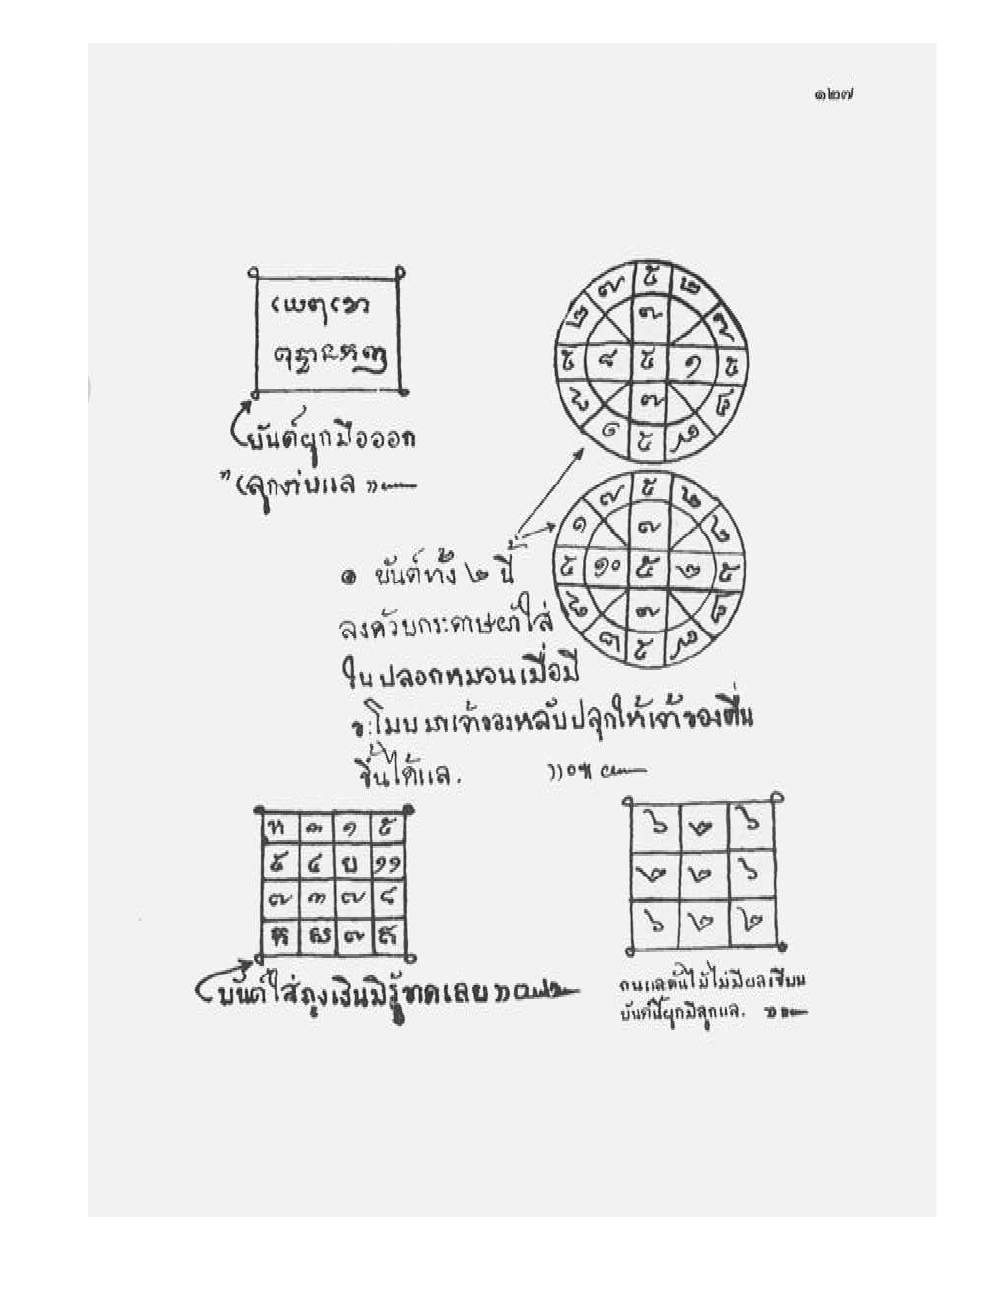 ๑๒๗
ยันต์ผูกมือออก
ลูกง่ายแล
๗ ๕ ๒
๗
๕ ๘ ๕ ๑ ๕
๗
๑ ๕
๗ ๕ ๒
๑ ๗
๕ ๑๐ ๕ ๒ ๕
๗
๕
๑ ยันต์ทั้ง ๒ นี้
ลงด้วยกระดาษผ้าใส่
ในปลอกหมอนเมื่อมี
ขะโมยมาเจ้าของหลับปลุกให้เจ้าของตื่น
ขึ้นได้แล.
ห ๓ ๑ ๕
๕ ๔ ย ๑๑
๗ ๓ ๗ ๘
๗
ยันต์ใส่ถุงเงินมิรู้ขาดเลย
๖ ๒ ๖
๒ ๒ ๖
๖ ๒ ๒
คนแลต้นไม้ไม่มีผลเขียน
ยันต์นี้ผูกมีลูกแล.